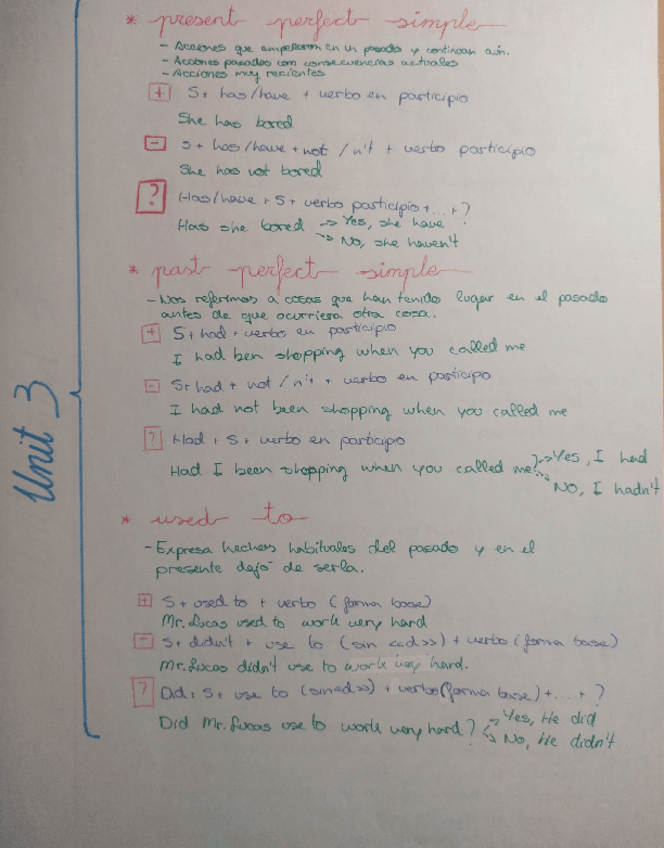 * present perfect simple
- Acciones que empezaron en un pasado y continúan aún.
- Acciones pasadas con consecuencias actuales
- Acciones muy recientes
+ S + has/have + verbo en participio
She has bored
- S + has/have + not / n't + verbo participio
She has not bored
? Has/have + S + verbo participio + ... + ?
Has she bored → Yes, she have
→ No, she haven't
* past perfect simple
- Nos referimos a cosas que han tenido lugar en el pasado
antes de que ocurriera otra cosa.
+ S + had + verbo en participio
I had ben shopping when you called me
- S + had + not / n't + verbo en participo
I had not been shopping when you called me
? Had + S + verbo en participo
Had I been shopping when you called me? → Yes, I had
→ No, I hadn't
Unit 3
* used to
- Expresa hechos habituales del pasado y en el
presente dejó de serla.
+ S + used to + verbo (forma base)
Mr. Lucas used to work very hard
- S + didn't + use to (sin <<d>>) + verbo (forma base)
Mr. Lucas didn't use to work very hard.
? Did + S + use to (sin <<d>>) + verbo (forma base) + ... + ?
Did Mr. Lucas use to work very hard? → Yes, He did
→ No, He didn't